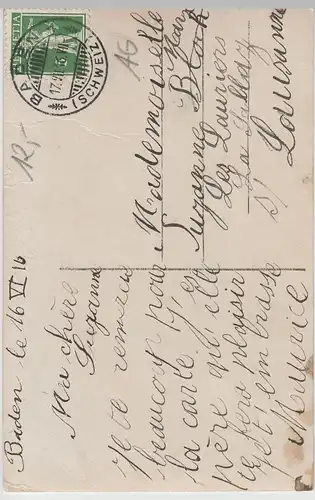 HELVETIA
BADEN
17.VI.
(SCHWEIZ)
AG
12,-
Mademoiselle
Suzanne Bloch
Les Lauriers
La Sallaz
s/ Lausanne
Baden le 16 VI 16
Ma chère
Suzanne
Je te remercie
beaucoup pour
la carte. J'es-
père qu'elle
te fera plaisir
t'embrasse
Maurice